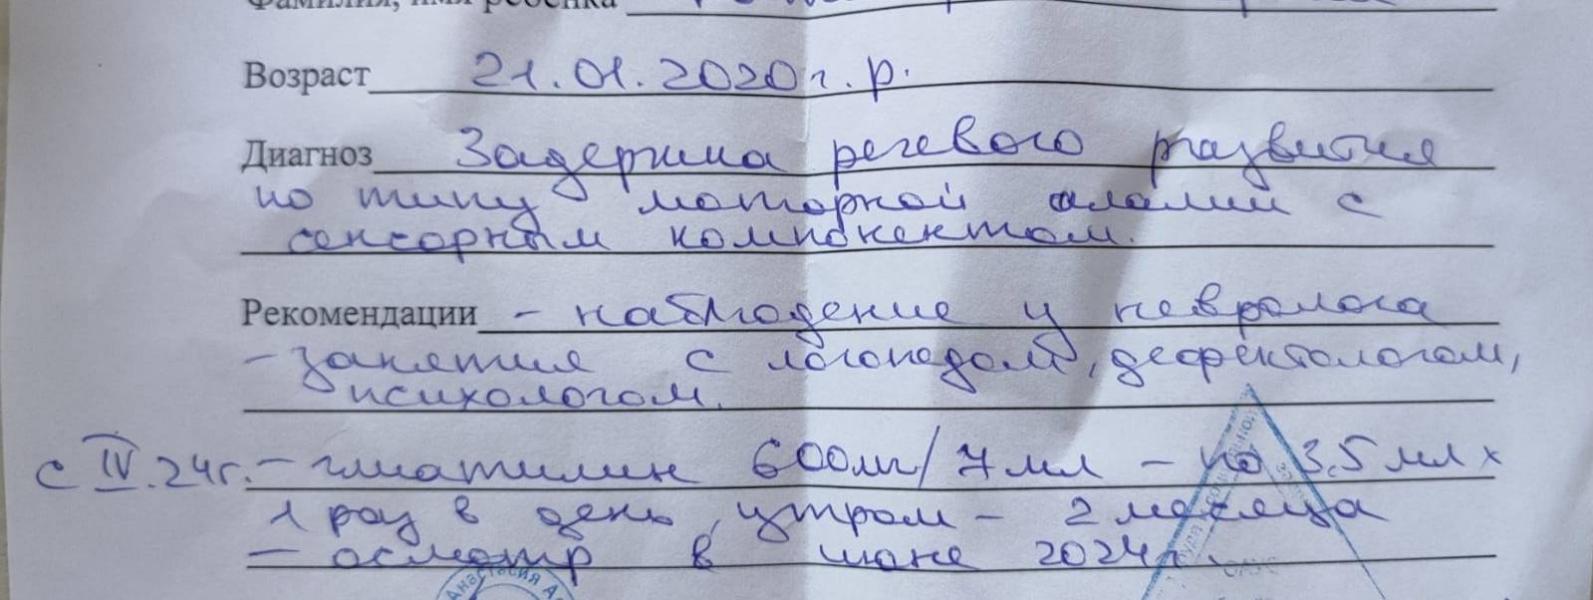 Фамилия, имя ребенка
Возраст 21.01.2020г.р.
Диагноз Задержка речевого развития
по типу моторной алалии с
сенсорным компонентом.
Рекомендации - наблюдение у невролога
- занятия с логопедом, дефектологом,
психологом.
с IV.24г. - глиатилин 600мг/7мл - по 3,5 мл х
1 раз в день, утром - 2 месяца
- осмотр в июне 2024г.
Анастасия